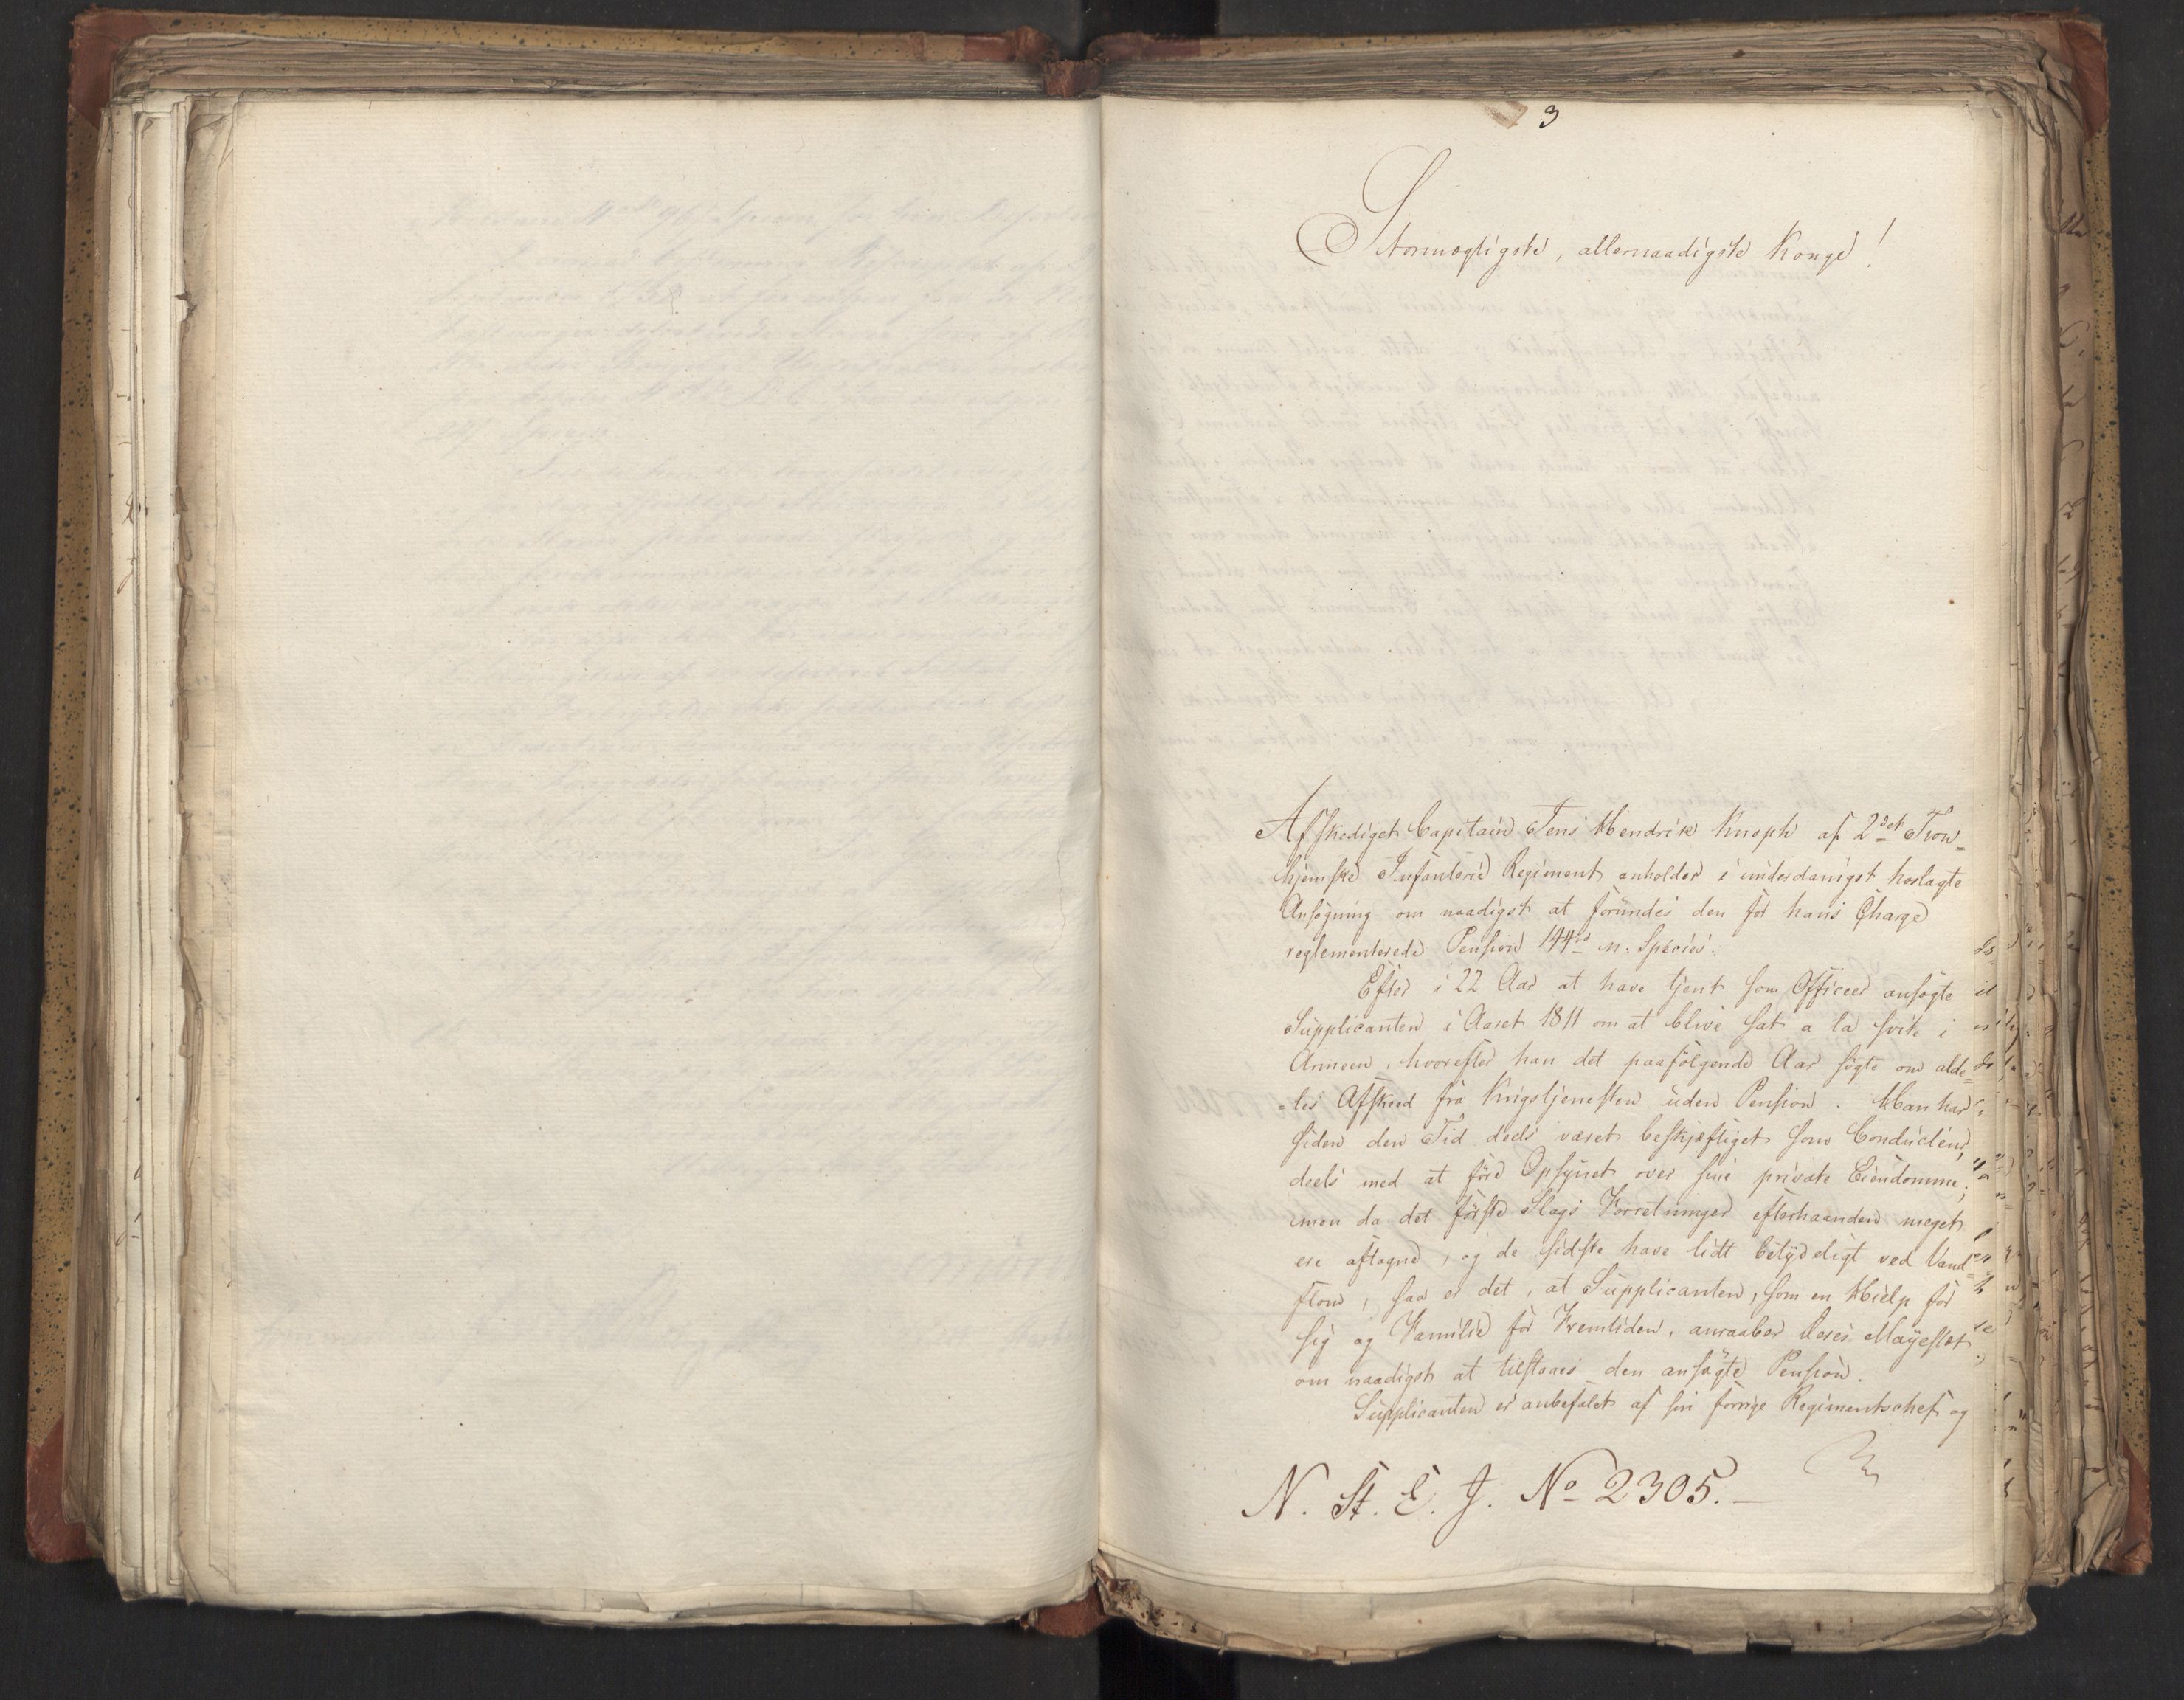 3
Stormægtigste, allernaadigste Konge!
Afskediget Capitain Jens Hendrik Knoph af 2det Tron=
hjemske Infanterie Regiment anholder i underdanigst hoslagte
Ansøgning om naadigst at forundes den for hans Charge
reglementerede Pension 144rd n: Species.
Efter i 22 Aar at have tjent som Officeer ansøgte
Supplicanten i Aaret 1811 om at blive sat a la svite i
Armeen, hvorefter han det paafølgende Aar søgte om alde=
=les Afskeed fra Krigstjenesten uden Pension. Han har
siden den Tid deels været beskjæftiget som Conducteur,
deels med at føre Opsynet over sine private Eiendomme;
men da det første Slags Forretninger efterhaanden meget
ere aftagne, og de sidste have lidt betydeligt ved Vand=
flom, saa er det, at Supplicanten, som en Hielp for
sig og Familie for Fremtiden, anraaber Deres Mayestæt
om naadigst at tilstaaes den ansøgte Pension.
Supplicanten er anbefalet af sin forrige Regimentschef og
N. St. E. J. No 2305.